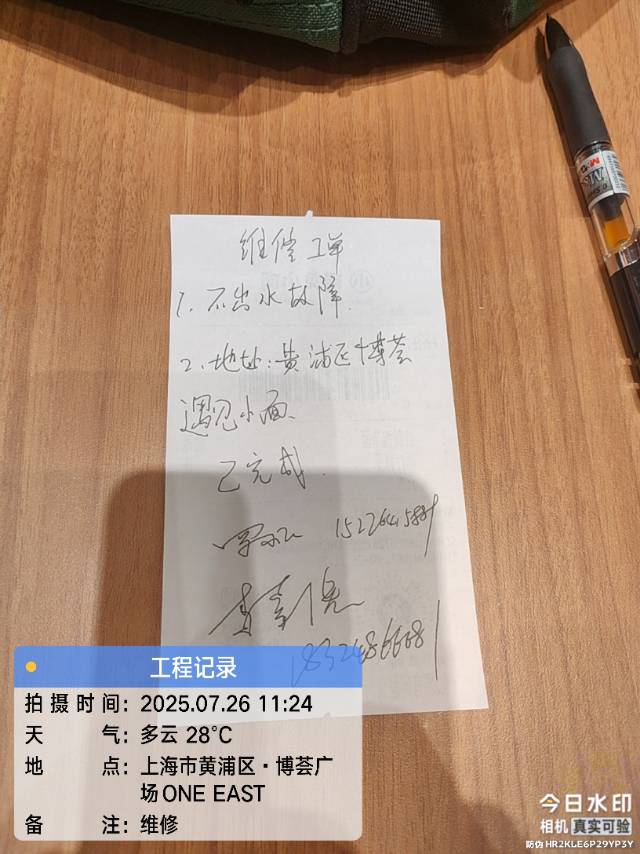 维修工单
1、不出水故障.
2、地址:黄浦区博荟
遇见小面、
已完成.
工程记录
拍摄时间: 2025.07.26 11:24
天 气: 多云 28℃
地 点: 上海市黄浦区·博荟广
场ONE EAST
备 注: 维修
今日水印
相机 真实可验
防伪 HR2KLE6P29YP3Y